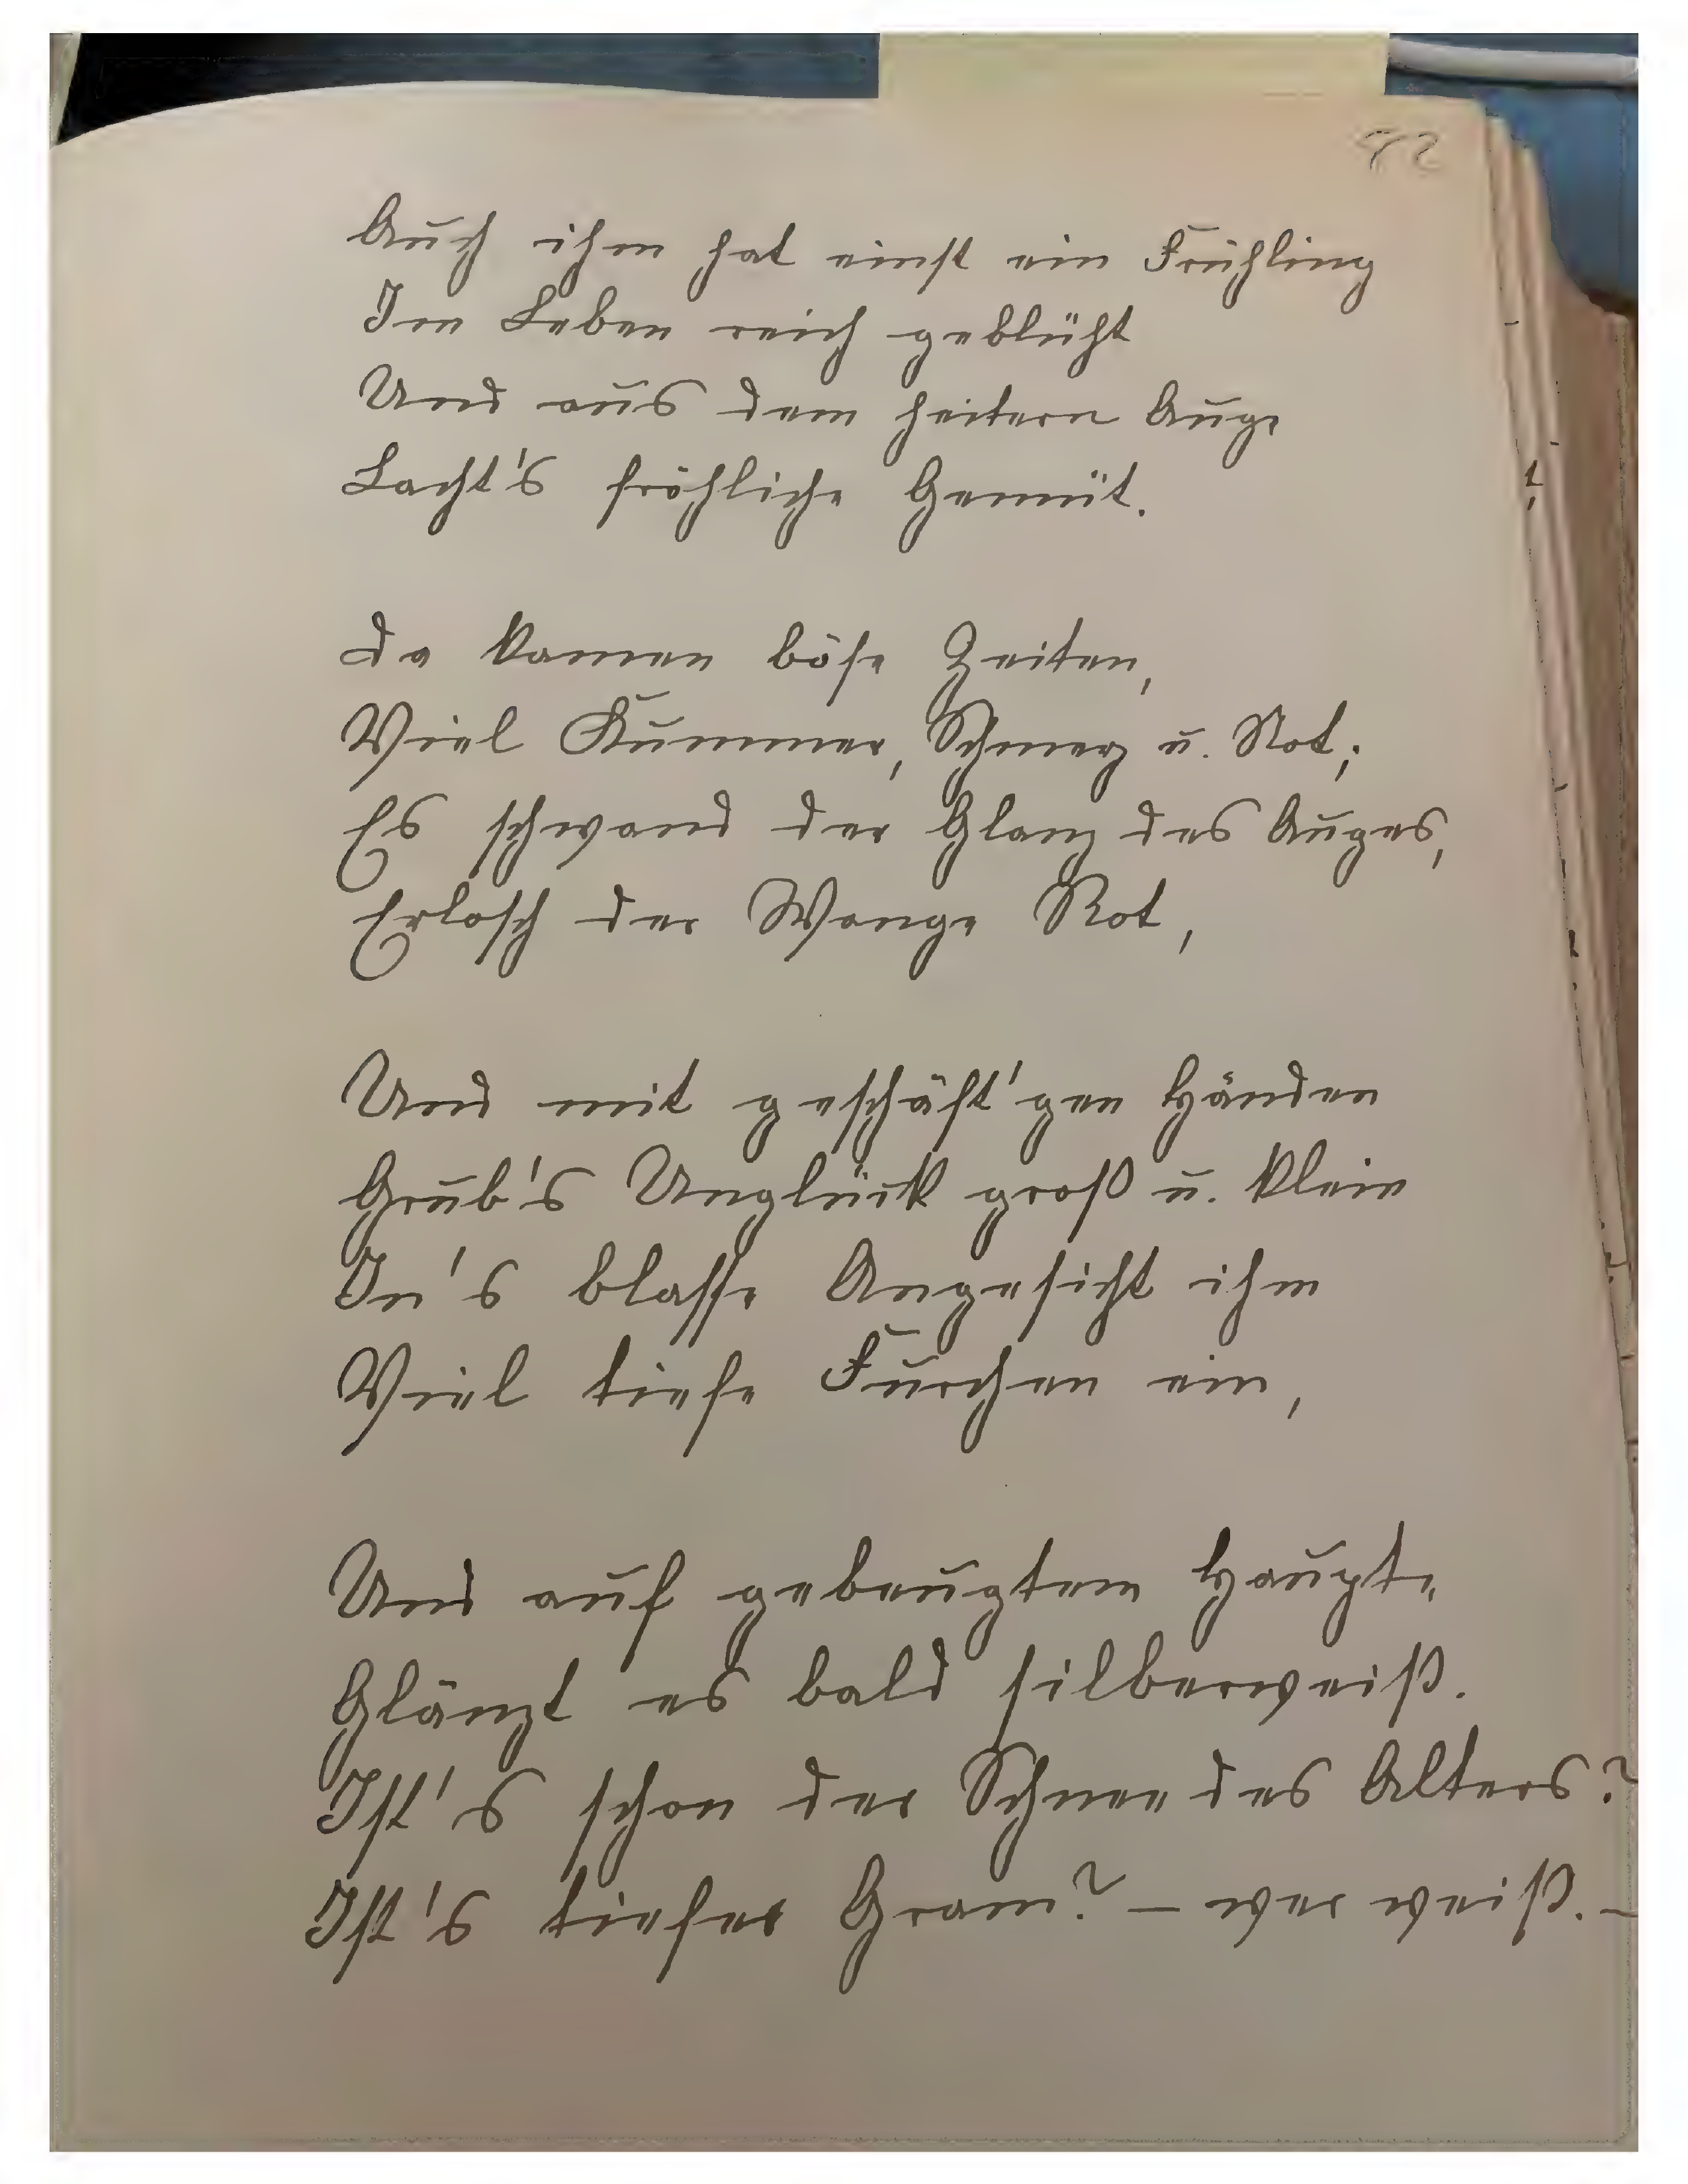 Auch ihm hat einst ein Frühling
Im Leben reich geblüht
Und aus dem heitern Auge
Lacht's fröhliche Gemüt.
Da kamen böse Zeiten,
Viel Kummer, Schmerz u. Not;
Es schwand der Glanz des Auges,
Erlosch der Wange Rot,
Und mit geschäft'gen Händen
Grub's Unglück groß u. klein
In's blasse Angesicht ihm
Viel tiefe Furchen ein,
Und auf gebeugtem Haupte
Glänzt es bald silberweiß.
Ist's schon der Schnee des Alters?
Ist's tiefer Gram? – wer weiß. –